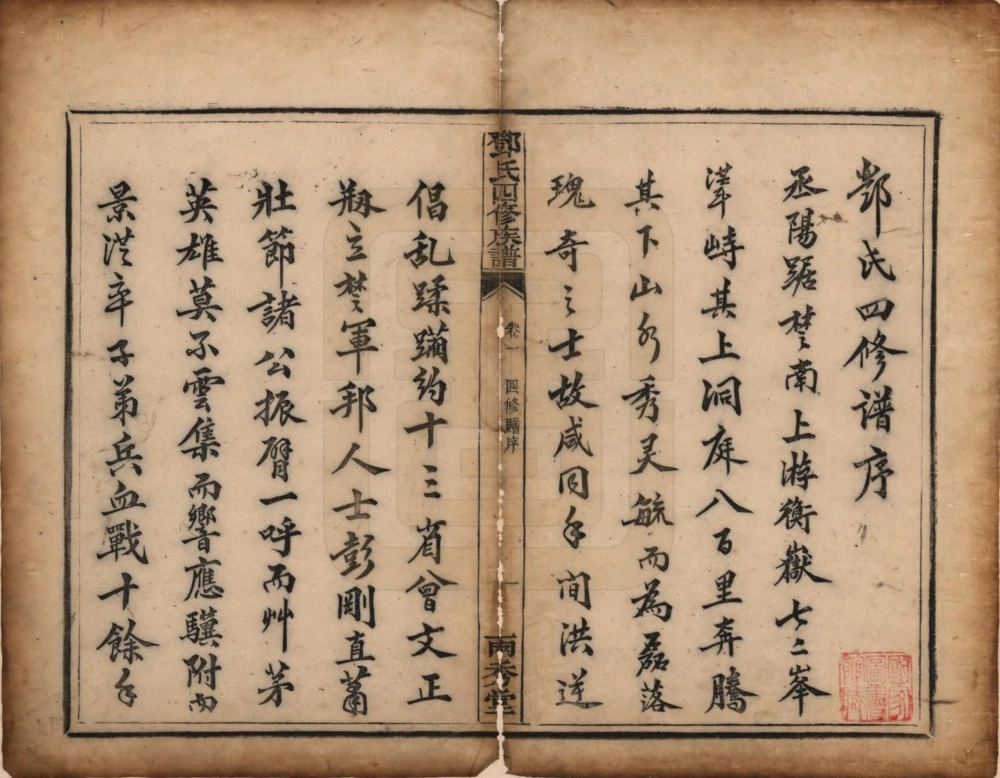 鄧氏四修谱序
丞陽踞楚南上游衡嶽七二峯
峙其上洞庭八百里奔騰
其下山水秀灵毓而為磊落
瑰奇之士故咸同年间洪逆
鄧氏四修族譜
卷一
四修贈序
一
兩秀堂
倡乱蹂躏约十三省曾文正
剏立楚軍邦人士彭剛直蕭
壯節諸公振臂一呼而艸茅
英雄莫不雲集而響應驥附而
景從率子弟兵血戰十餘年